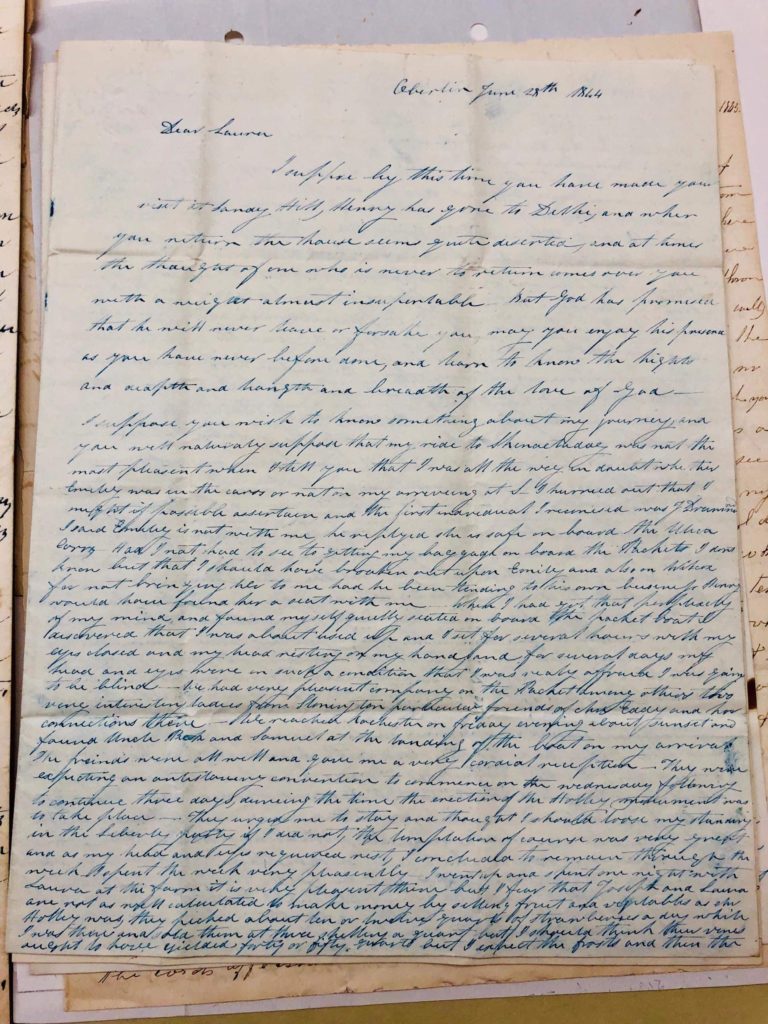 Oberlin June 28th 1844
Dear Laura
I suppose by this time you have made your
visit at Sandy Hill, Henry has gone to Delhi, and when
you return the house seems quite deserted, and at times
the thought of one who is never to return comes over you
with a weight almost insuportable But God has promised
that he will never leave or forsake you, may you enjoy his presence
as you have never before done, and learn to know the hights
and deapth and length and breadth of the love of God —
I suppose you wish to know something about my journey, and
you will naturaly suppose that my ride to was not the
most pleasent when I tell you that I was all the way in doubt
Emilie was in the cars or not on my arriveing at S— I hurried out that I
might if possible assertain and the first individual I was
I said Emilie is not with me he replyed she is safe on board the Utica
Had I not had to see to getting my baggage on board the Packets I dont
know but that I should have broken out upon Emilie and also on
for not bringing her to me had he been tending to his own buisness
would have found her a seat with me — When I had got that perplexity
of my mind, and found myself quietly seated on board the packet boat I
discovered that I was about used up and I set for several hours with my
eyes closed and my head resting on my hand, and for several days my
head and eyes were in such a condition that I was realy affraid I was going
to be blind — We had very pleasent company on the Packet among others two
very interesting ladies from Stonington particular friends of Eddy and her
connections there — We reached Rochester on friday evening about sunset and
found Uncle and Samuel at the landing of the boat on my arrival
The freinds were all well and gave me a very cordial reception — They were
expecting an antislavery convention to commence on the wednesday following
to continue three days, dureing the time the erection of the Holley monument was
to take place — They urged me to stay and thought I should loose my standing
in the Liberty party if I did not, the temptation of course was very great
and as my head and eyes required rest, I concluded to remain through the
week I spent the week very pleasently I went up and spent one night with
Laura at the farm it is very pleasent there but I fear that Joseph and Laura
are not as well calculated to make money by selling fruit and vegitables as
Holley was, they picked about ten or twelve quarts of strawberies a day while
I was there and sold them at three shilling a quart, but I should think their vines
ought to have yielded forty or fifty quarts but I expect the frosts and then the